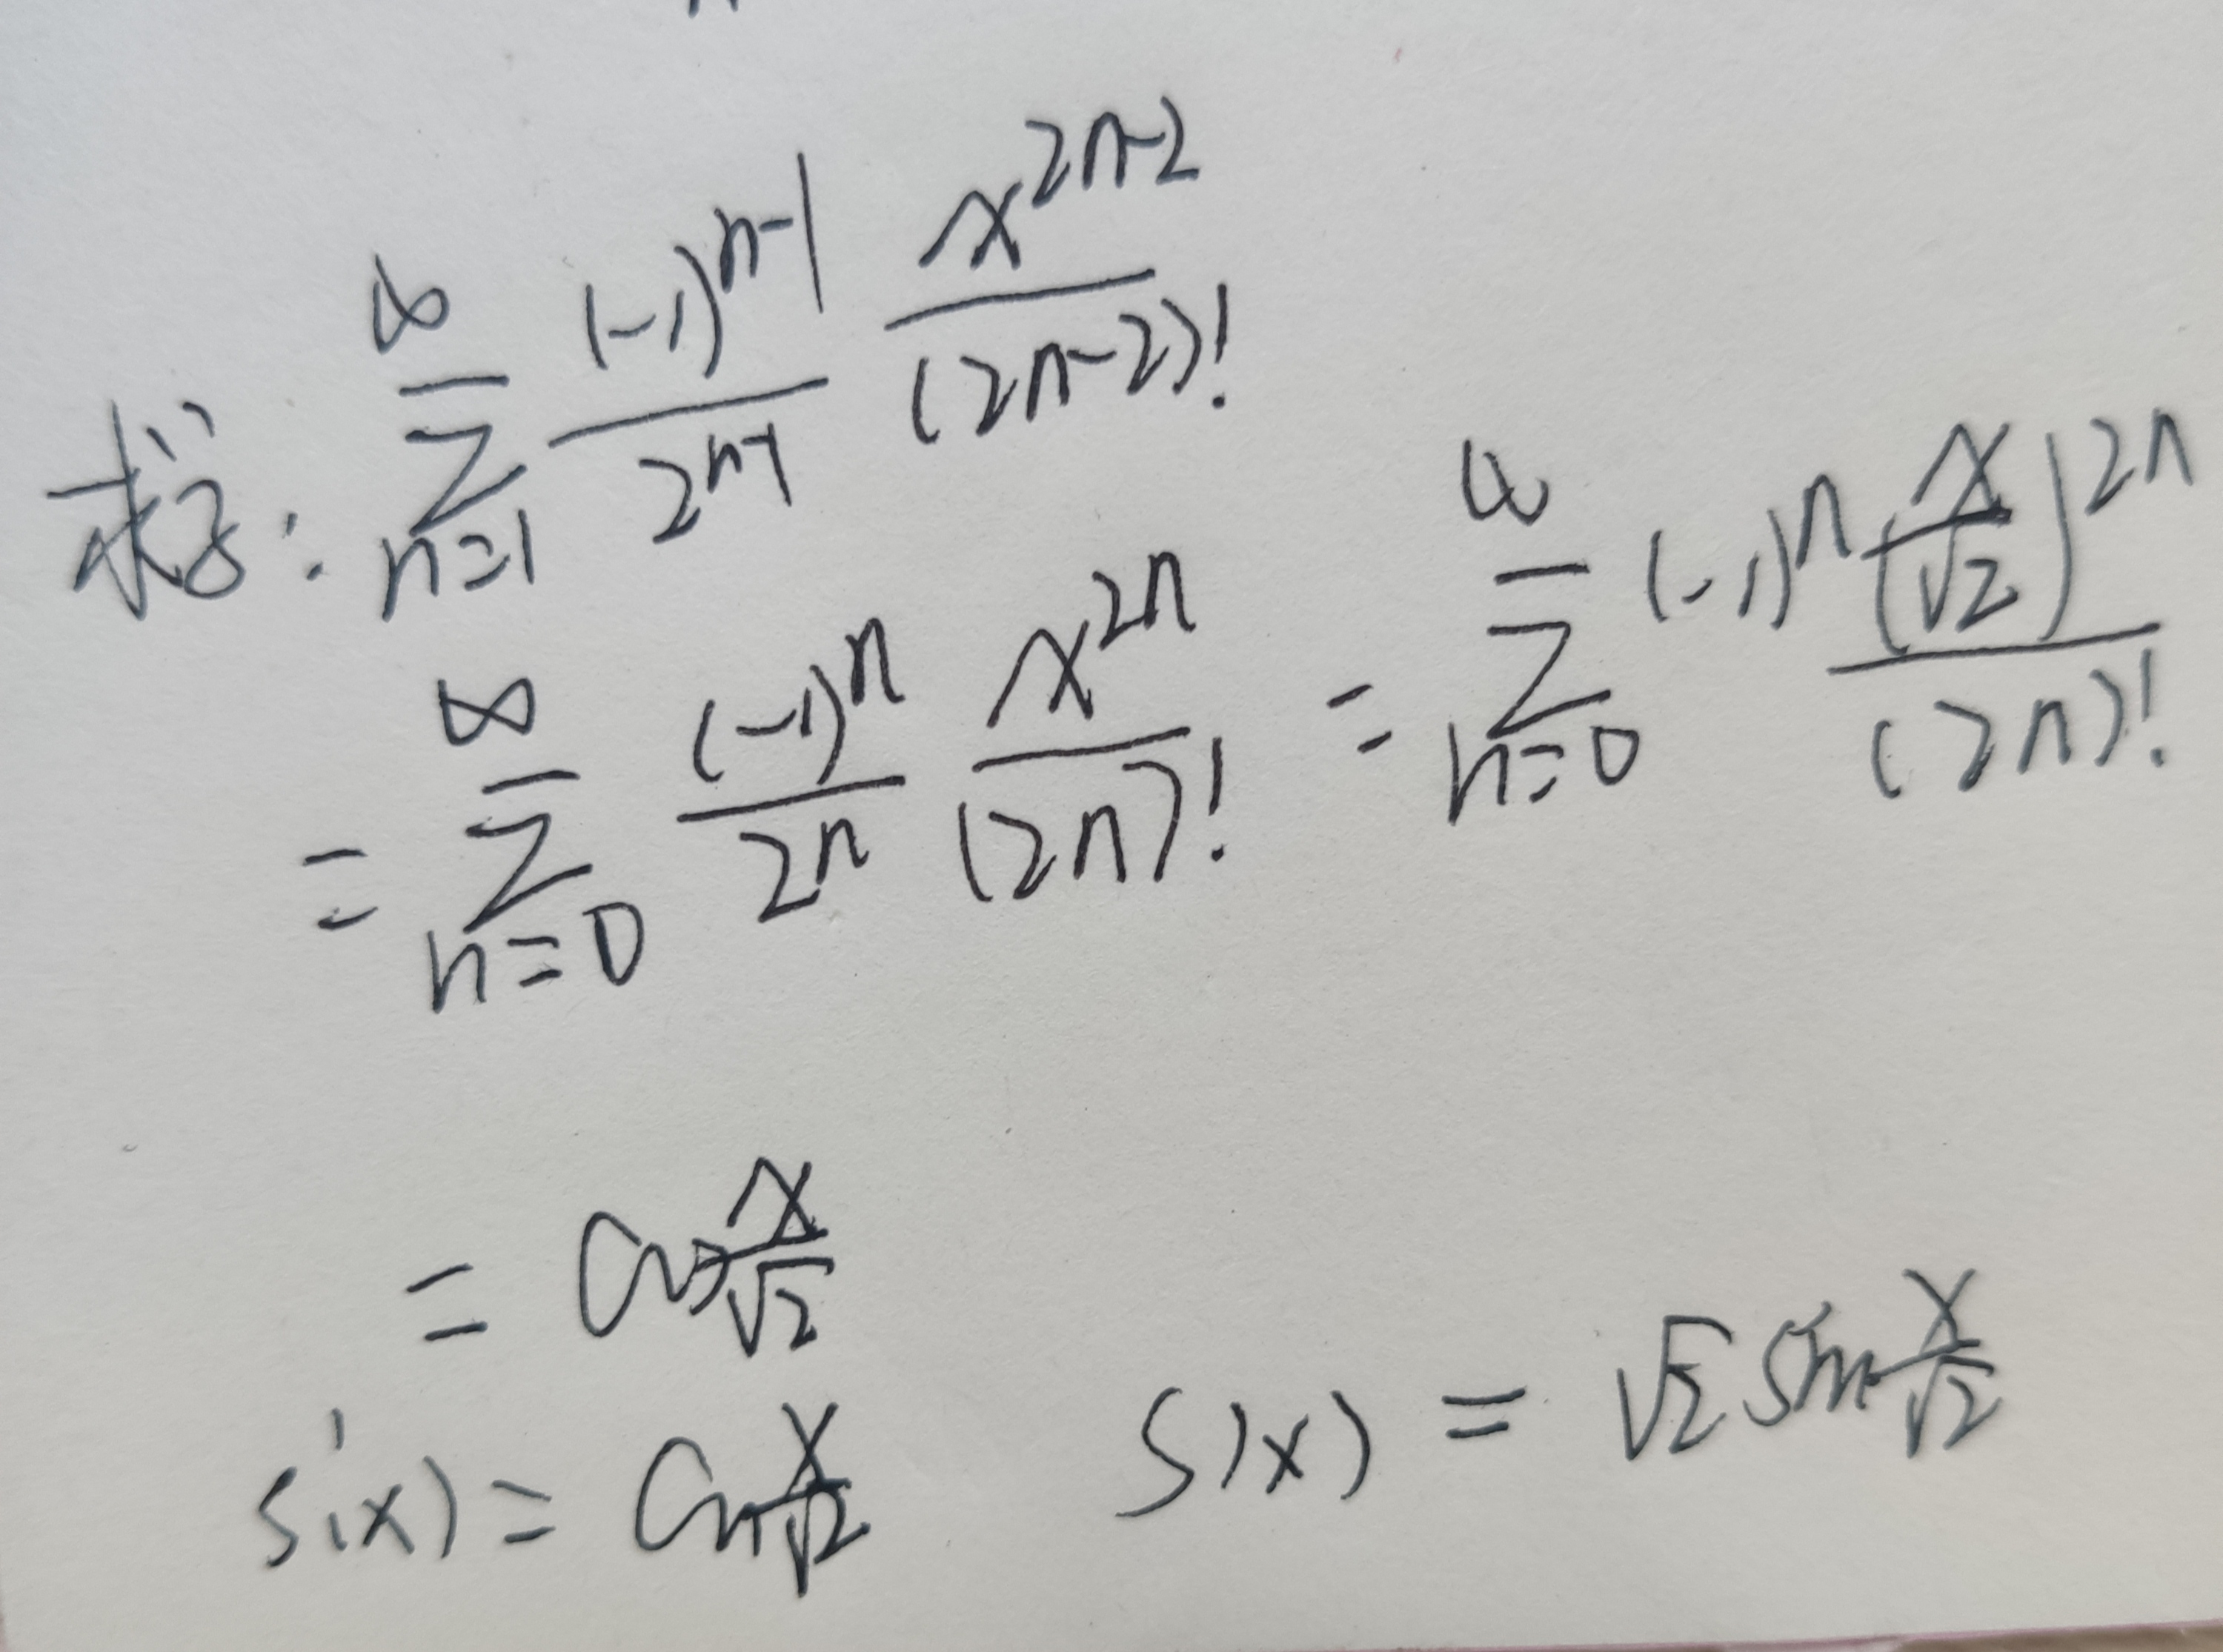 求导: \sum_{n=1}^{\infty} \frac{(-1)^{n-1}}{2^{n-1}} \frac{x^{2n-2}}{(2n-2)!}
= \sum_{n=0}^{\infty} \frac{(-1)^n}{2^n} \frac{x^{2n}}{(2n)!} = \sum_{n=0}^{\infty} (-1)^n \frac{(\frac{x}{\sqrt{2}})^{2n}}{(2n)!}
= cos \frac{x}{\sqrt{2}}
s'(x) = cos \frac{x}{\sqrt{2}} s(x) = \sqrt{2} sin \frac{x}{\sqrt{2}}